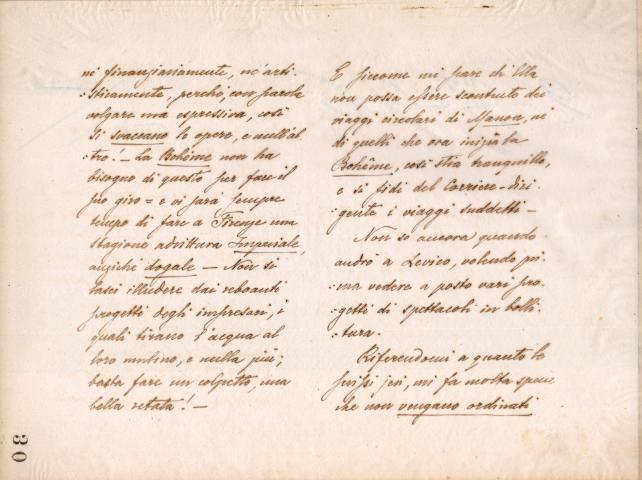 nè finanziariamente, nè arti-
:sticamente, perchè, con parola
volgare ma espressiva, così
si svaccano le opere, e null'al
:tro! - La Bohême non ha
bisogno di questo per fare il
suo giro = e vi sarà sempre
tempo di fare a Firenze una
stagione addirittura Imperiale,
anzichè dogale - Non si
lasci illudere dai reboanti
progetti degli impresari, i
quali tirano l'acqua al
loro mulino, e nulla più;
basta fare un colpetto, una
bella retata! -
E siccome mi pare che Ella
non possa essere scontento dei
viaggi circolari di Manon, nè
di quelli che ora inizia la
Bohême, così stia tranquillo,
e si fidi del Corriere-diri-
:gente i viaggi suddetti -
Non so ancora quando
andrò a Levico, volendo pri-
:ma vedere a posto vari pro-
:getti di spettacoli in bolli-
:tura.
Riferendomi a quanto le
scrissi jeri, mi fa molta specie
che non vengano ordinati
30